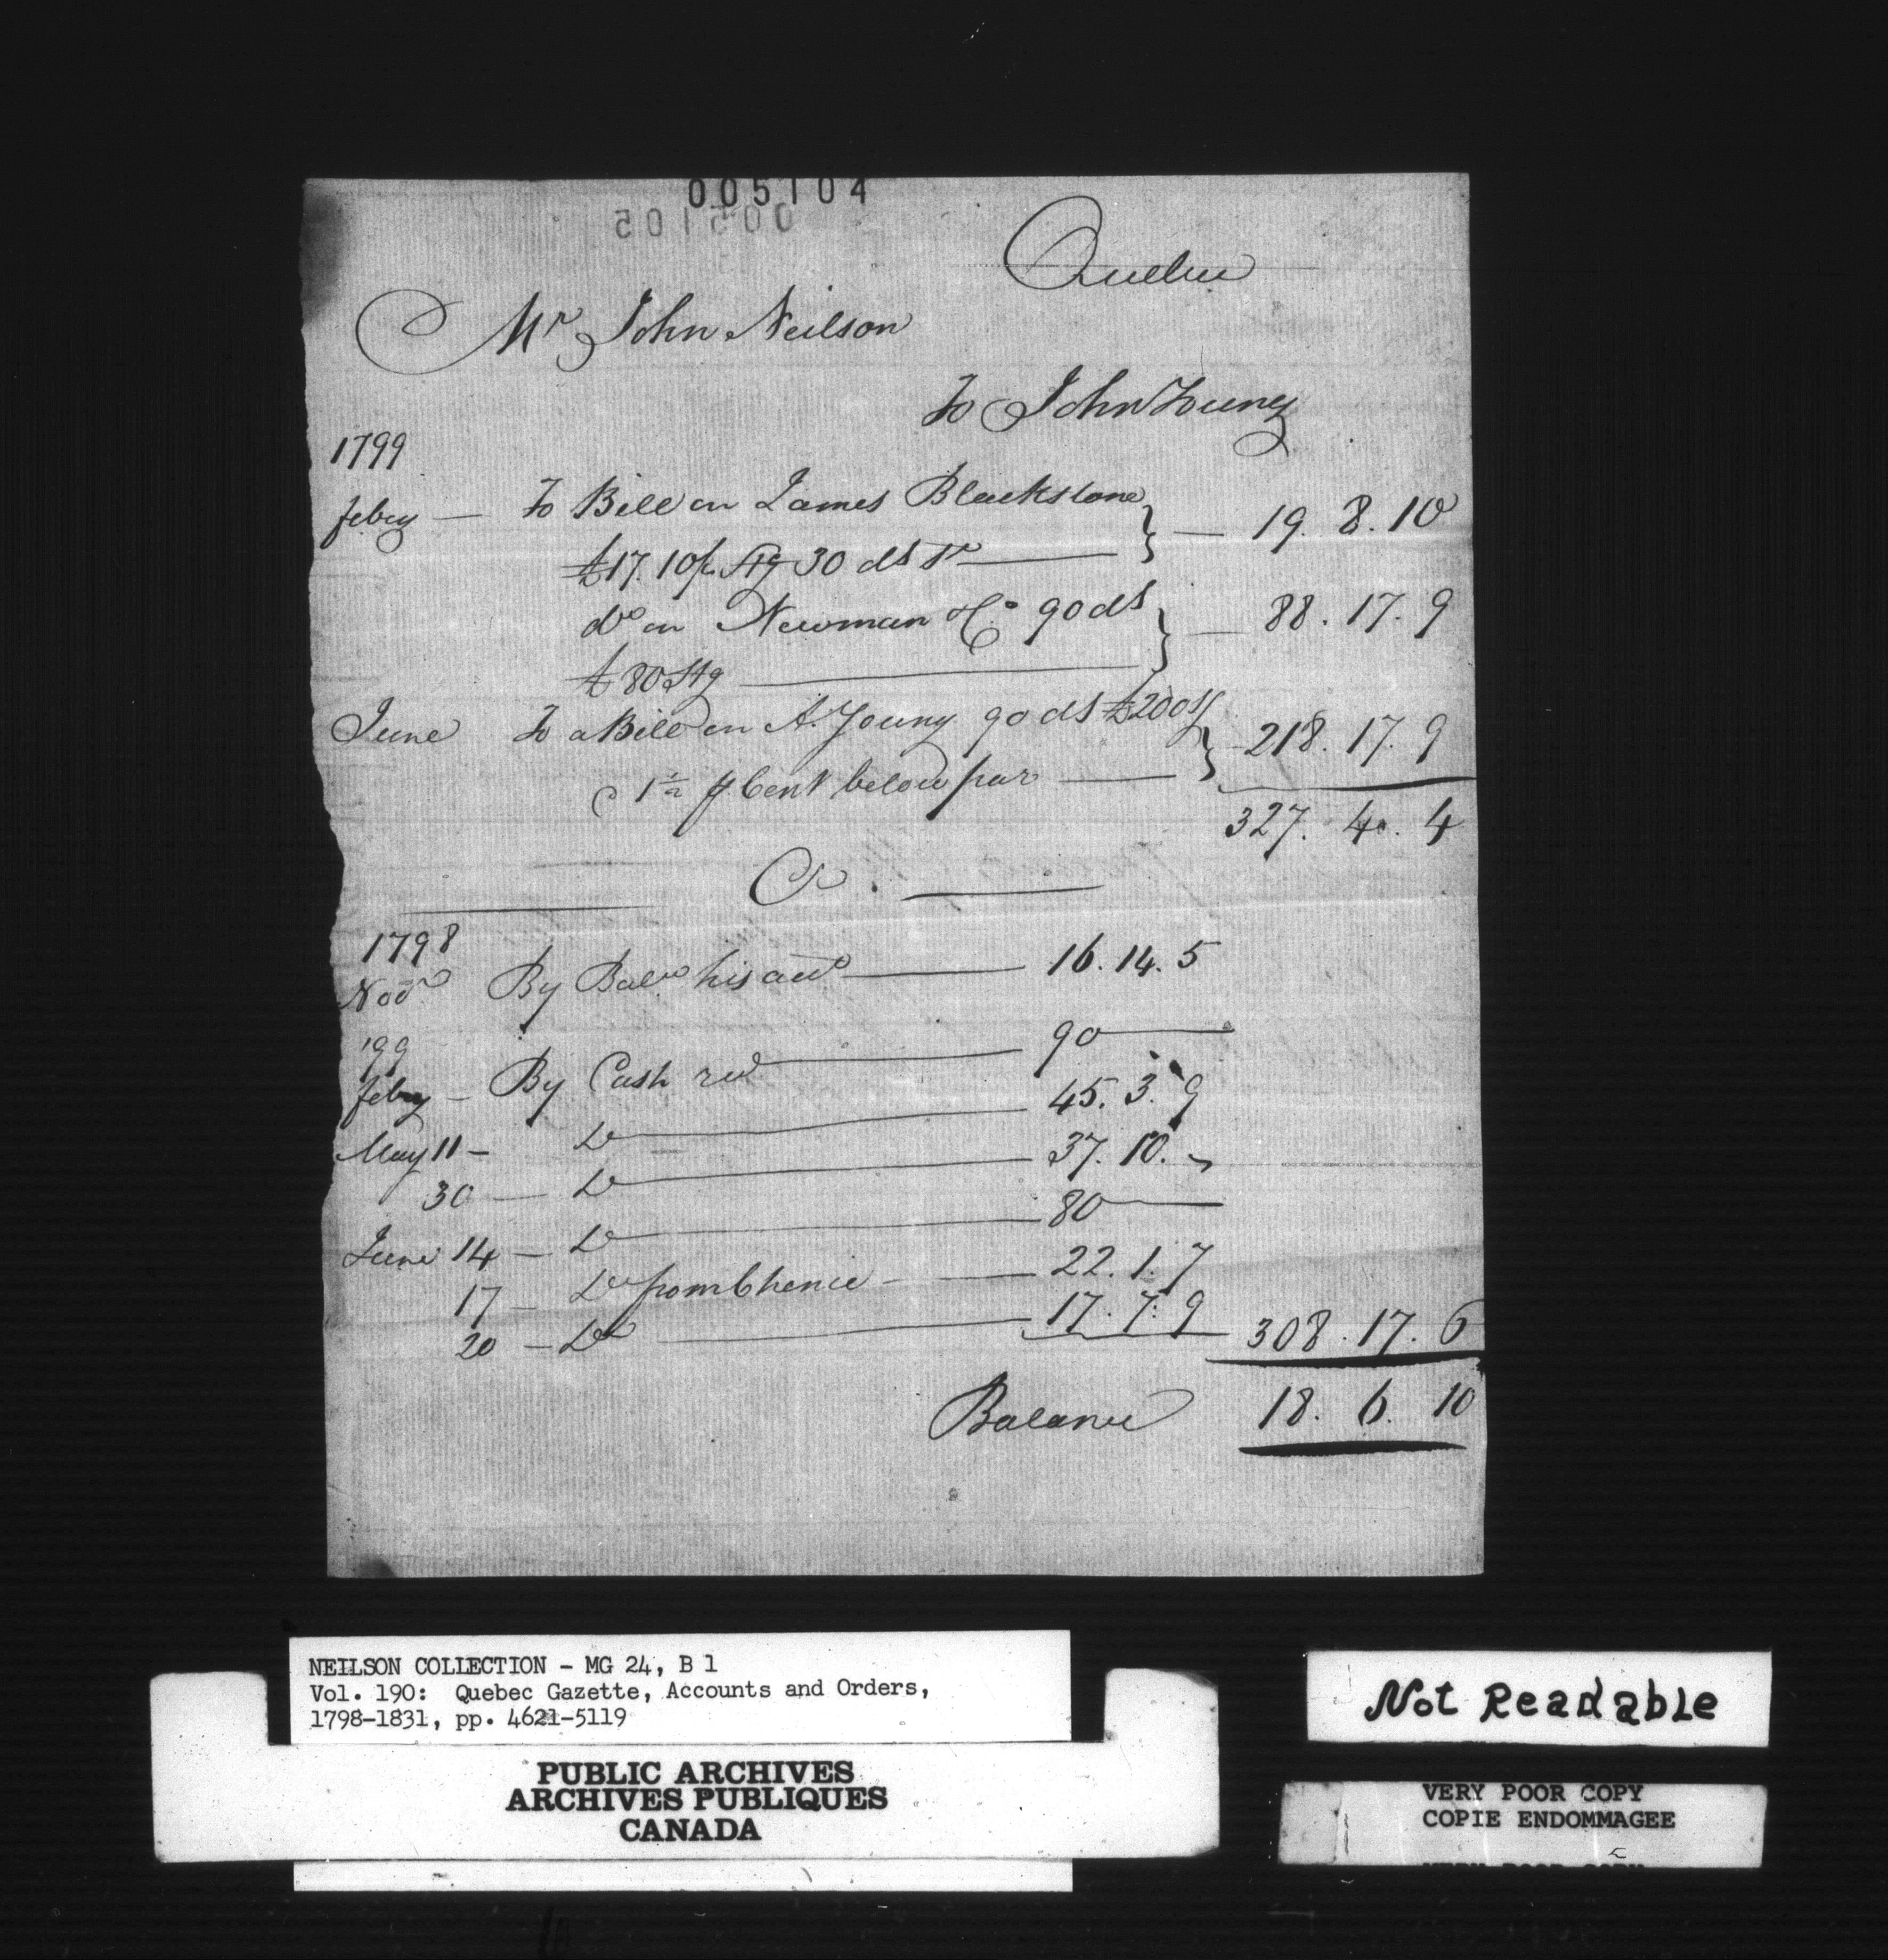 005104
005105
Quebec
Mr John Neilson
To John Young
1799
feby — To Bill on James Blackstone
£17.10/ Stg 30 dst — 19. 8. 10
do on Newman & Co 90 dst
£80 Stg — 88. 17. 9
June To a Bill on A. Young 90 dst £200 St
1½ p Cent below par — 218. 17. 9
327. 4. 4
Cr.
1798
Novr By Balce his acct — 16. 14. 5
'99
feby — By Cash recd — 90 —
May 11 — Do — 45. 3. 9
30 — Do — 37. 10. -
June 14 — Do — 80 —
17 — Do from — 22. 1. 7
20 — Do — 17. 7. 9 308. 17. 6
Balance 18. 6. 10
NEILSON COLLECTION - MG 24, B 1
Vol. 190: Quebec Gazette, Accounts and Orders,
1798-1831, pp. 4621-5119
PUBLIC ARCHIVES
ARCHIVES PUBLIQUES
CANADA
Not Readable
VERY POOR COPY
COPIE ENDOMMAGEE
VERY POOR COPY